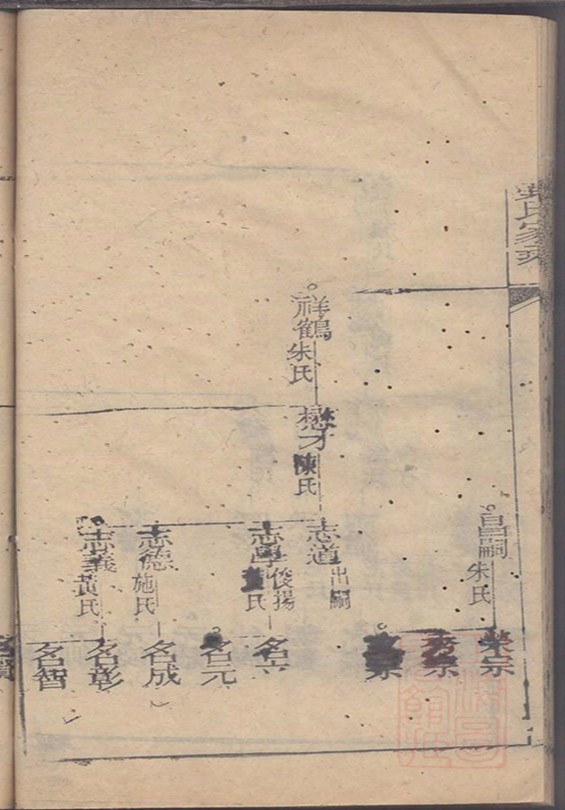 氏家
昌嗣
朱氏
榮宗
秀宗
宗
祥鶴
朱氏
懋才
陳氏
志道
出嗣
志學
俊揚
氏
名立
名元
志德
施氏
名成
志義
黃氏
名彰
名智